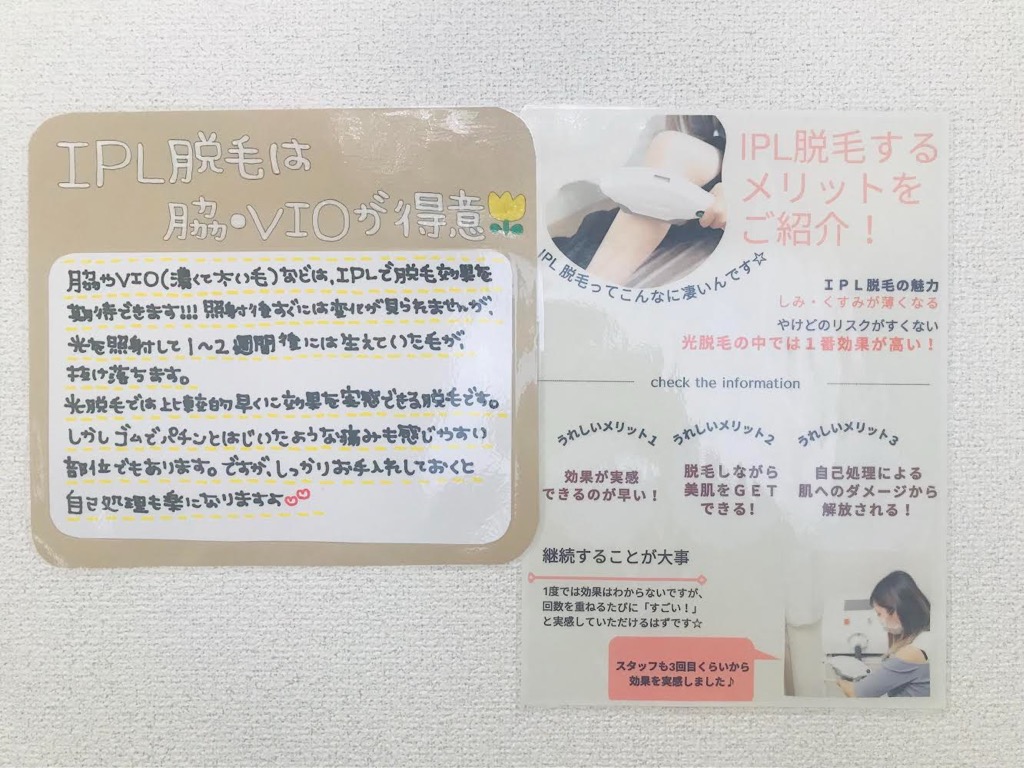 IPL脱毛は
脇・VIOが得意
脇やVIO(濃くて太い毛)などは、IPLで脱毛効果を
期待できます!!! 照射後すぐには変化が見られませんが、
光を照射して1〜2週間後には生えていた毛が、
抜け落ちます。
光脱毛では比較的早くに効果を実感できる脱毛です。
しかしゴムでパチンとはじいたような痛みも感じやすい
部位でもあります。ですが、しっかりお手入れしておくと
自己処理も楽になりますよ
IPL脱毛する
メリットを
ご紹介！
IPL 脱毛ってこんなに凄いんです☆
IPL脱毛の魅力
しみ・くすみが薄くなる
やけどのリスクがすくない
光脱毛の中では１番効果が高い！
check the information
うれしいメリット1
効果が実感
できるのが早い！
うれしいメリット2
脱毛しながら
美肌をGET
できる!
うれしいメリット3
自己処理による
肌へのダメージから
解放される！
継続することが大事
1度では効果はわからないですが、
回数を重ねるたびに「すごい！」
と実感していただけるはずです☆
スタッフも3回目くらいから
効果を実感しました♪